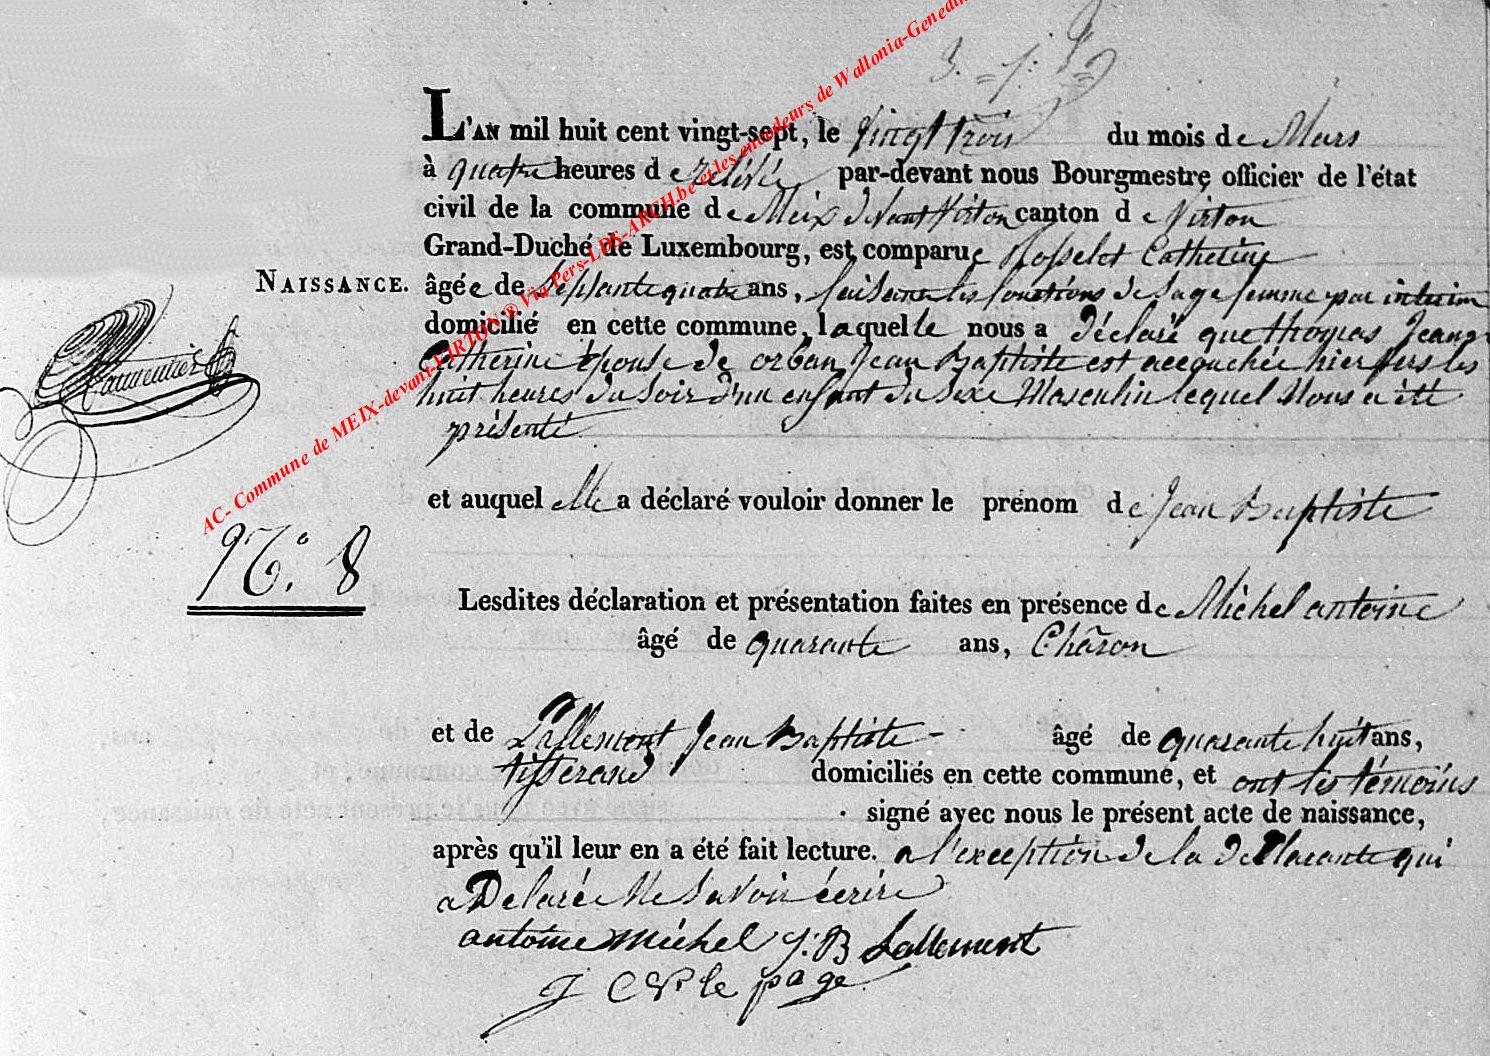 L'AN mil huit cent vingt-sept, le vingt trois du mois de Mars
à quatre heures de relevée par-devant nous Bourgmestre officier de l'état
civil de la commune de Meix devant Virton canton de Virton
Grand-Duché de Luxembourg, est comparue Rosselet Catherine
NAISSANCE.
âgée de septante quatre ans, faisant les fonctions de sage femme par interim
domicilié en cette commune, laquelle nous a déclaré que thomas Jeanne
Catherine épouse de orban Jean Baptiste est accouchée hier vers les
huit heures du soir d'un enfant du sexe Masculin lequel Nous a été
présenté
et auquel elle a déclaré vouloir donner le prénom de Jean Baptiste
N.° 8
Lesdites déclaration et présentation faites en présence de Michel antoine
âgé de quarante ans, Charon
et de Lallemont Jean Baptiste - âgé de quarante huit ans,
tisserand domiciliés en cette commune, et ont les témoins
signé avec nous le présent acte de naissance,
après qu'il leur en a été fait lecture. a l'exception de la déclarante qui
a Déclaré Ne savoir écrire
antoine michel J. B Lallemont
J le page
AC- Commune de MEIX-devant-VIRTON ® Via Pers-LDS-ARCH.be et les encodeurs de Wallonia-Genealo